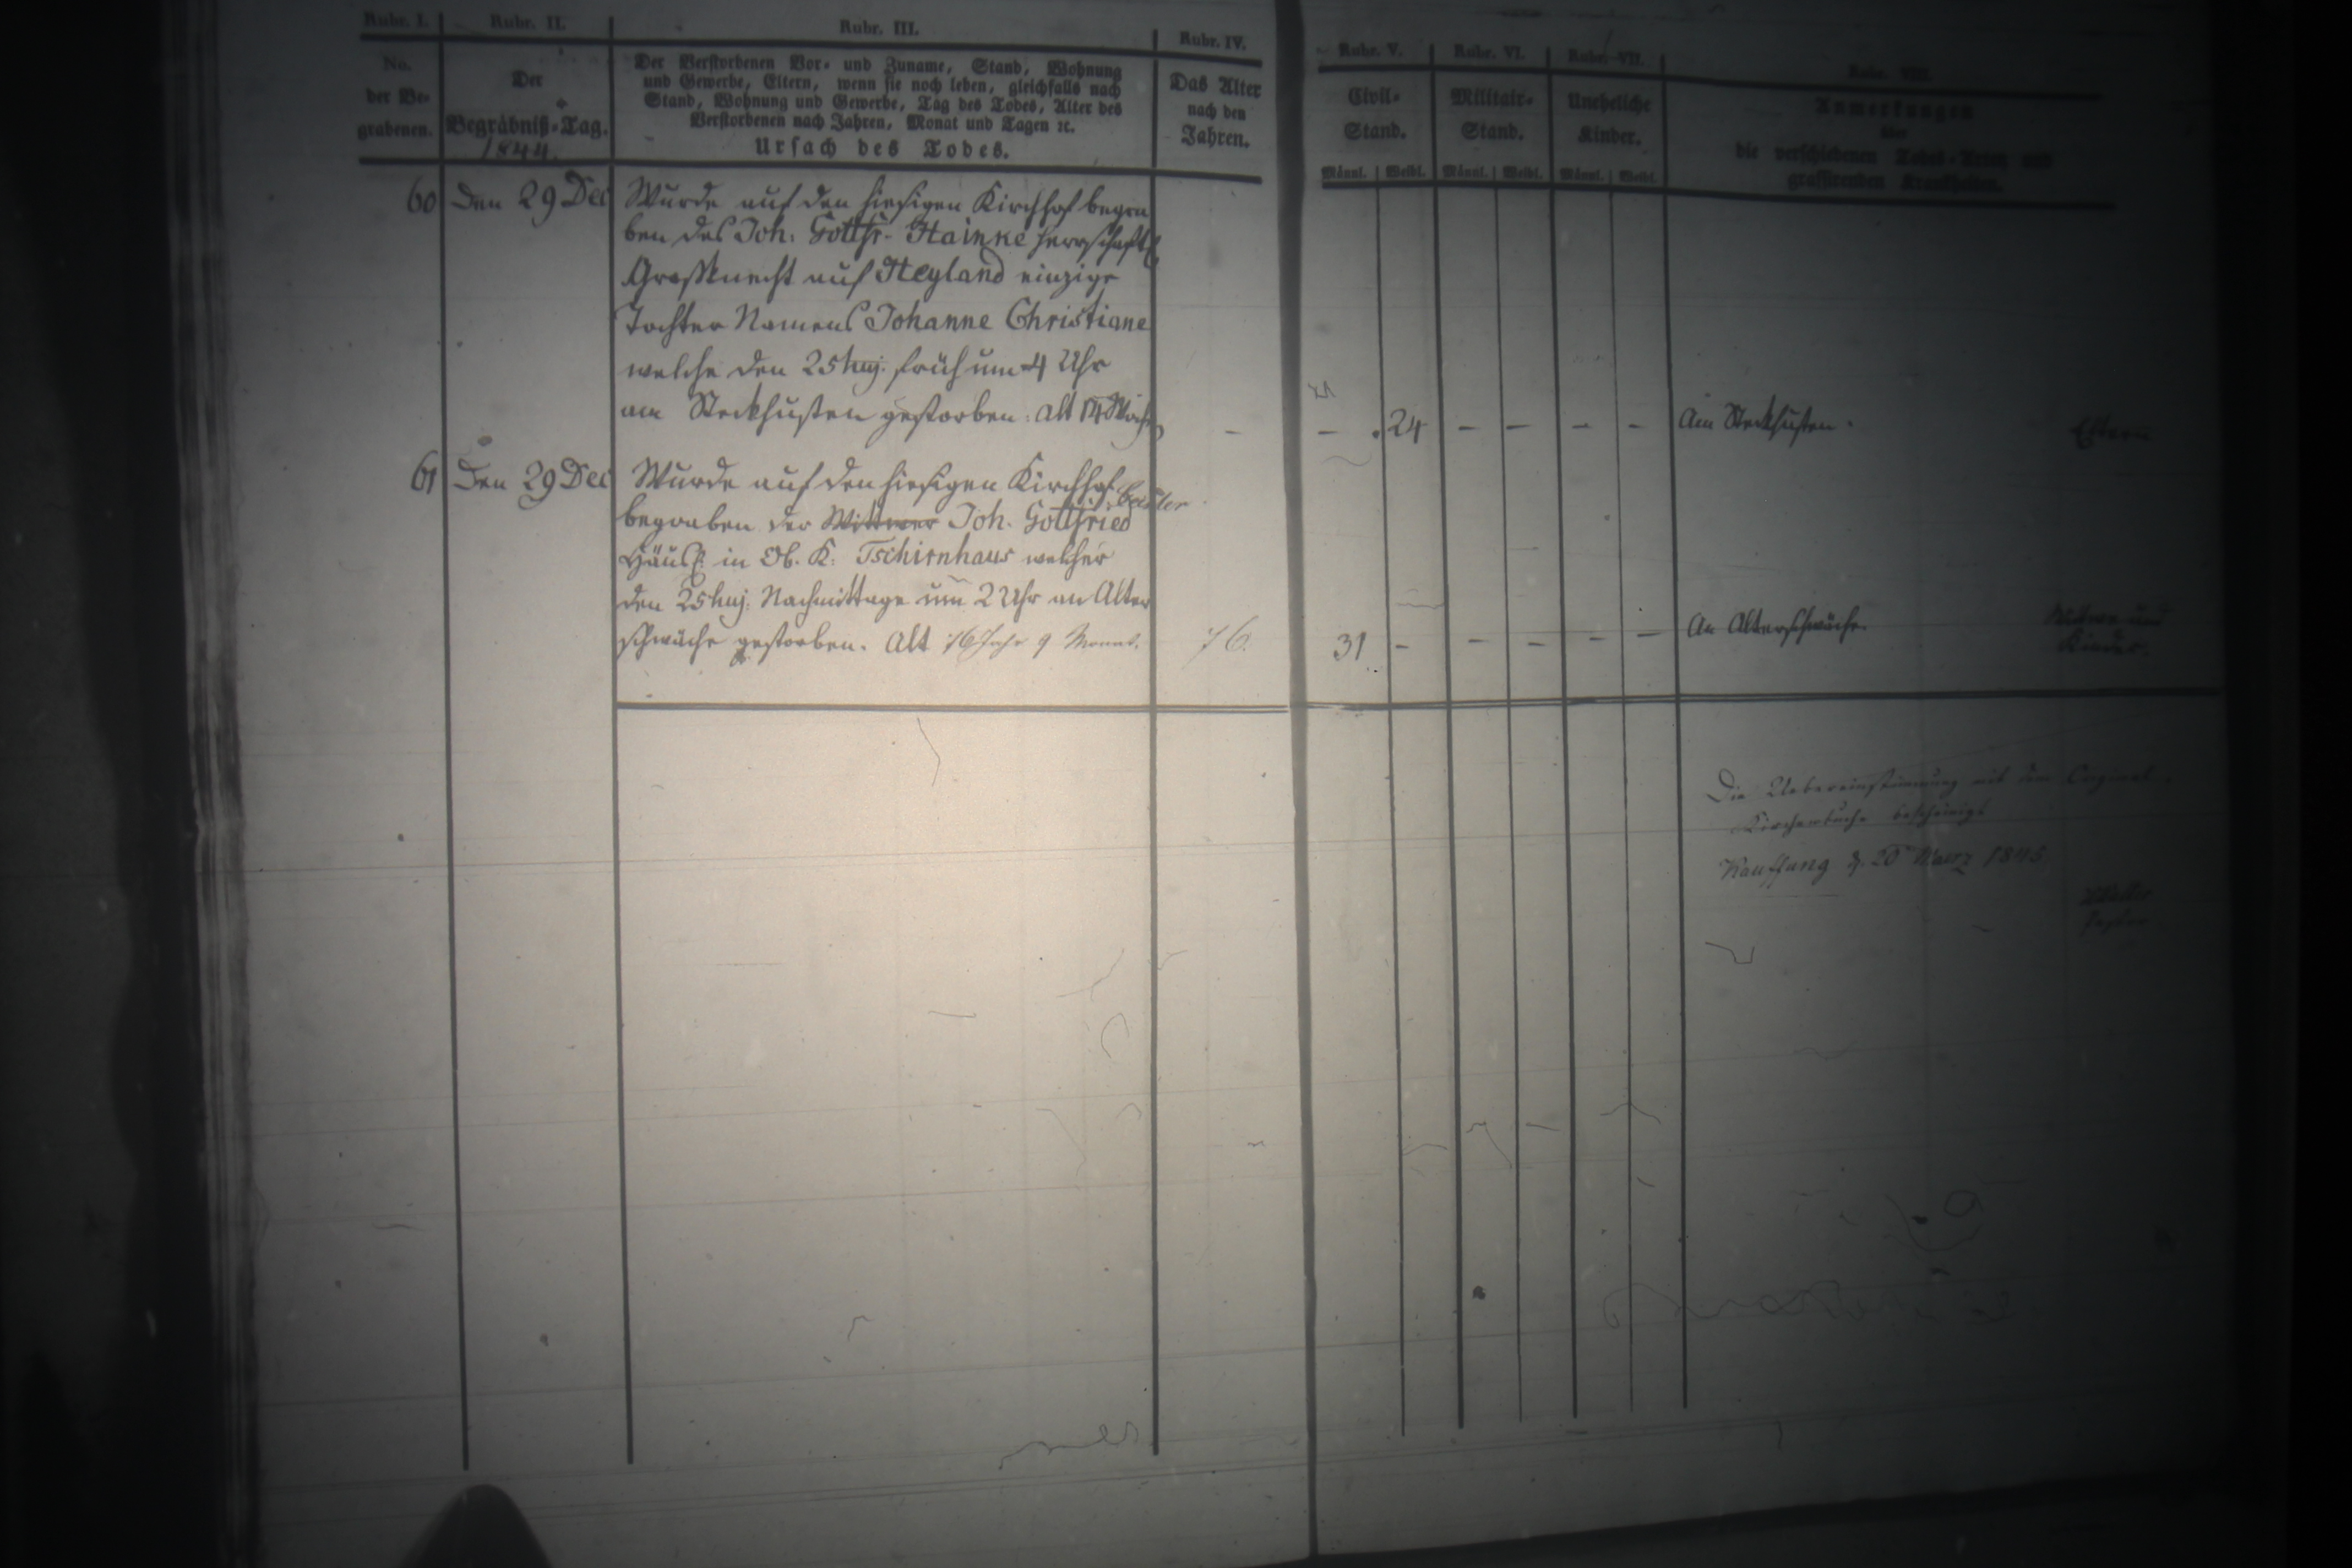 Rubr. I.
No.
der Be-
grabenen.
Rubr. II.
Der
Begräbniß-Tag.
1844.
Rubr. III.
Der Verstorbenen Vor- und Zuname, Stand, Wohnung
und Gewerbe, Eltern, wenn sie noch leben, gleichfalls nach
Stand, Wohnung und Gewerbe, Tag des Todes, Alter des
Verstorbenen nach Jahren, Monat und Tagen ꝛc.
Ursach des Todes.
Rubr. IV.
Das Alter
nach den
Jahren.
Rubr. V.
Civil-
Stand.
Männl. Weibl.
Rubr. VI.
Militair-
Stand.
Männl. Weibl.
Rubr. VII.
Uneheliche
Kinder.
Männl. Weibl.
Rubr. VIII.
Anmerkungen
über
die verschiedenen Todes-Arten und
grassirenden Krankheiten.
60 Den 29 Dec
Wurde auf den hiesigen Kirchhof begra
ben des Joh: Gottfr. Hainke herrschaftl
Großknecht auf Heyland einzige
Tochter Namens Johanne Christiane
welche den 25 huj. früh um 4 Uhr
am Steckhusten gestorben: alt 14 Woch
– – 24 – – – – Am Steckhusten. Eltern
61 Den 29 Dec
Wurde auf den hiesigen Kirchhof
begraben der Wittwer Joh. Gottfried
Häusl: in Ob. K: Tschirnhaus welcher
den 25 huj: Nachmittage um 2 Uhr an Alter
schwäche gestorben. Alt 76 Jahr 9 Monat.
76. 31 – – – – – An Alterschwäche. Wittwe und
Kinder.
Die Uebereinstimmung mit dem Original
Kirchenbuche bescheinigt
Kauffung d. 20 Maerz 1845